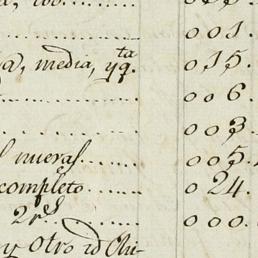 001.
a, media, y qta. 015.
006.
003.
nueras 005.
completo 024.
2 rs 000.
y otro id Chi-